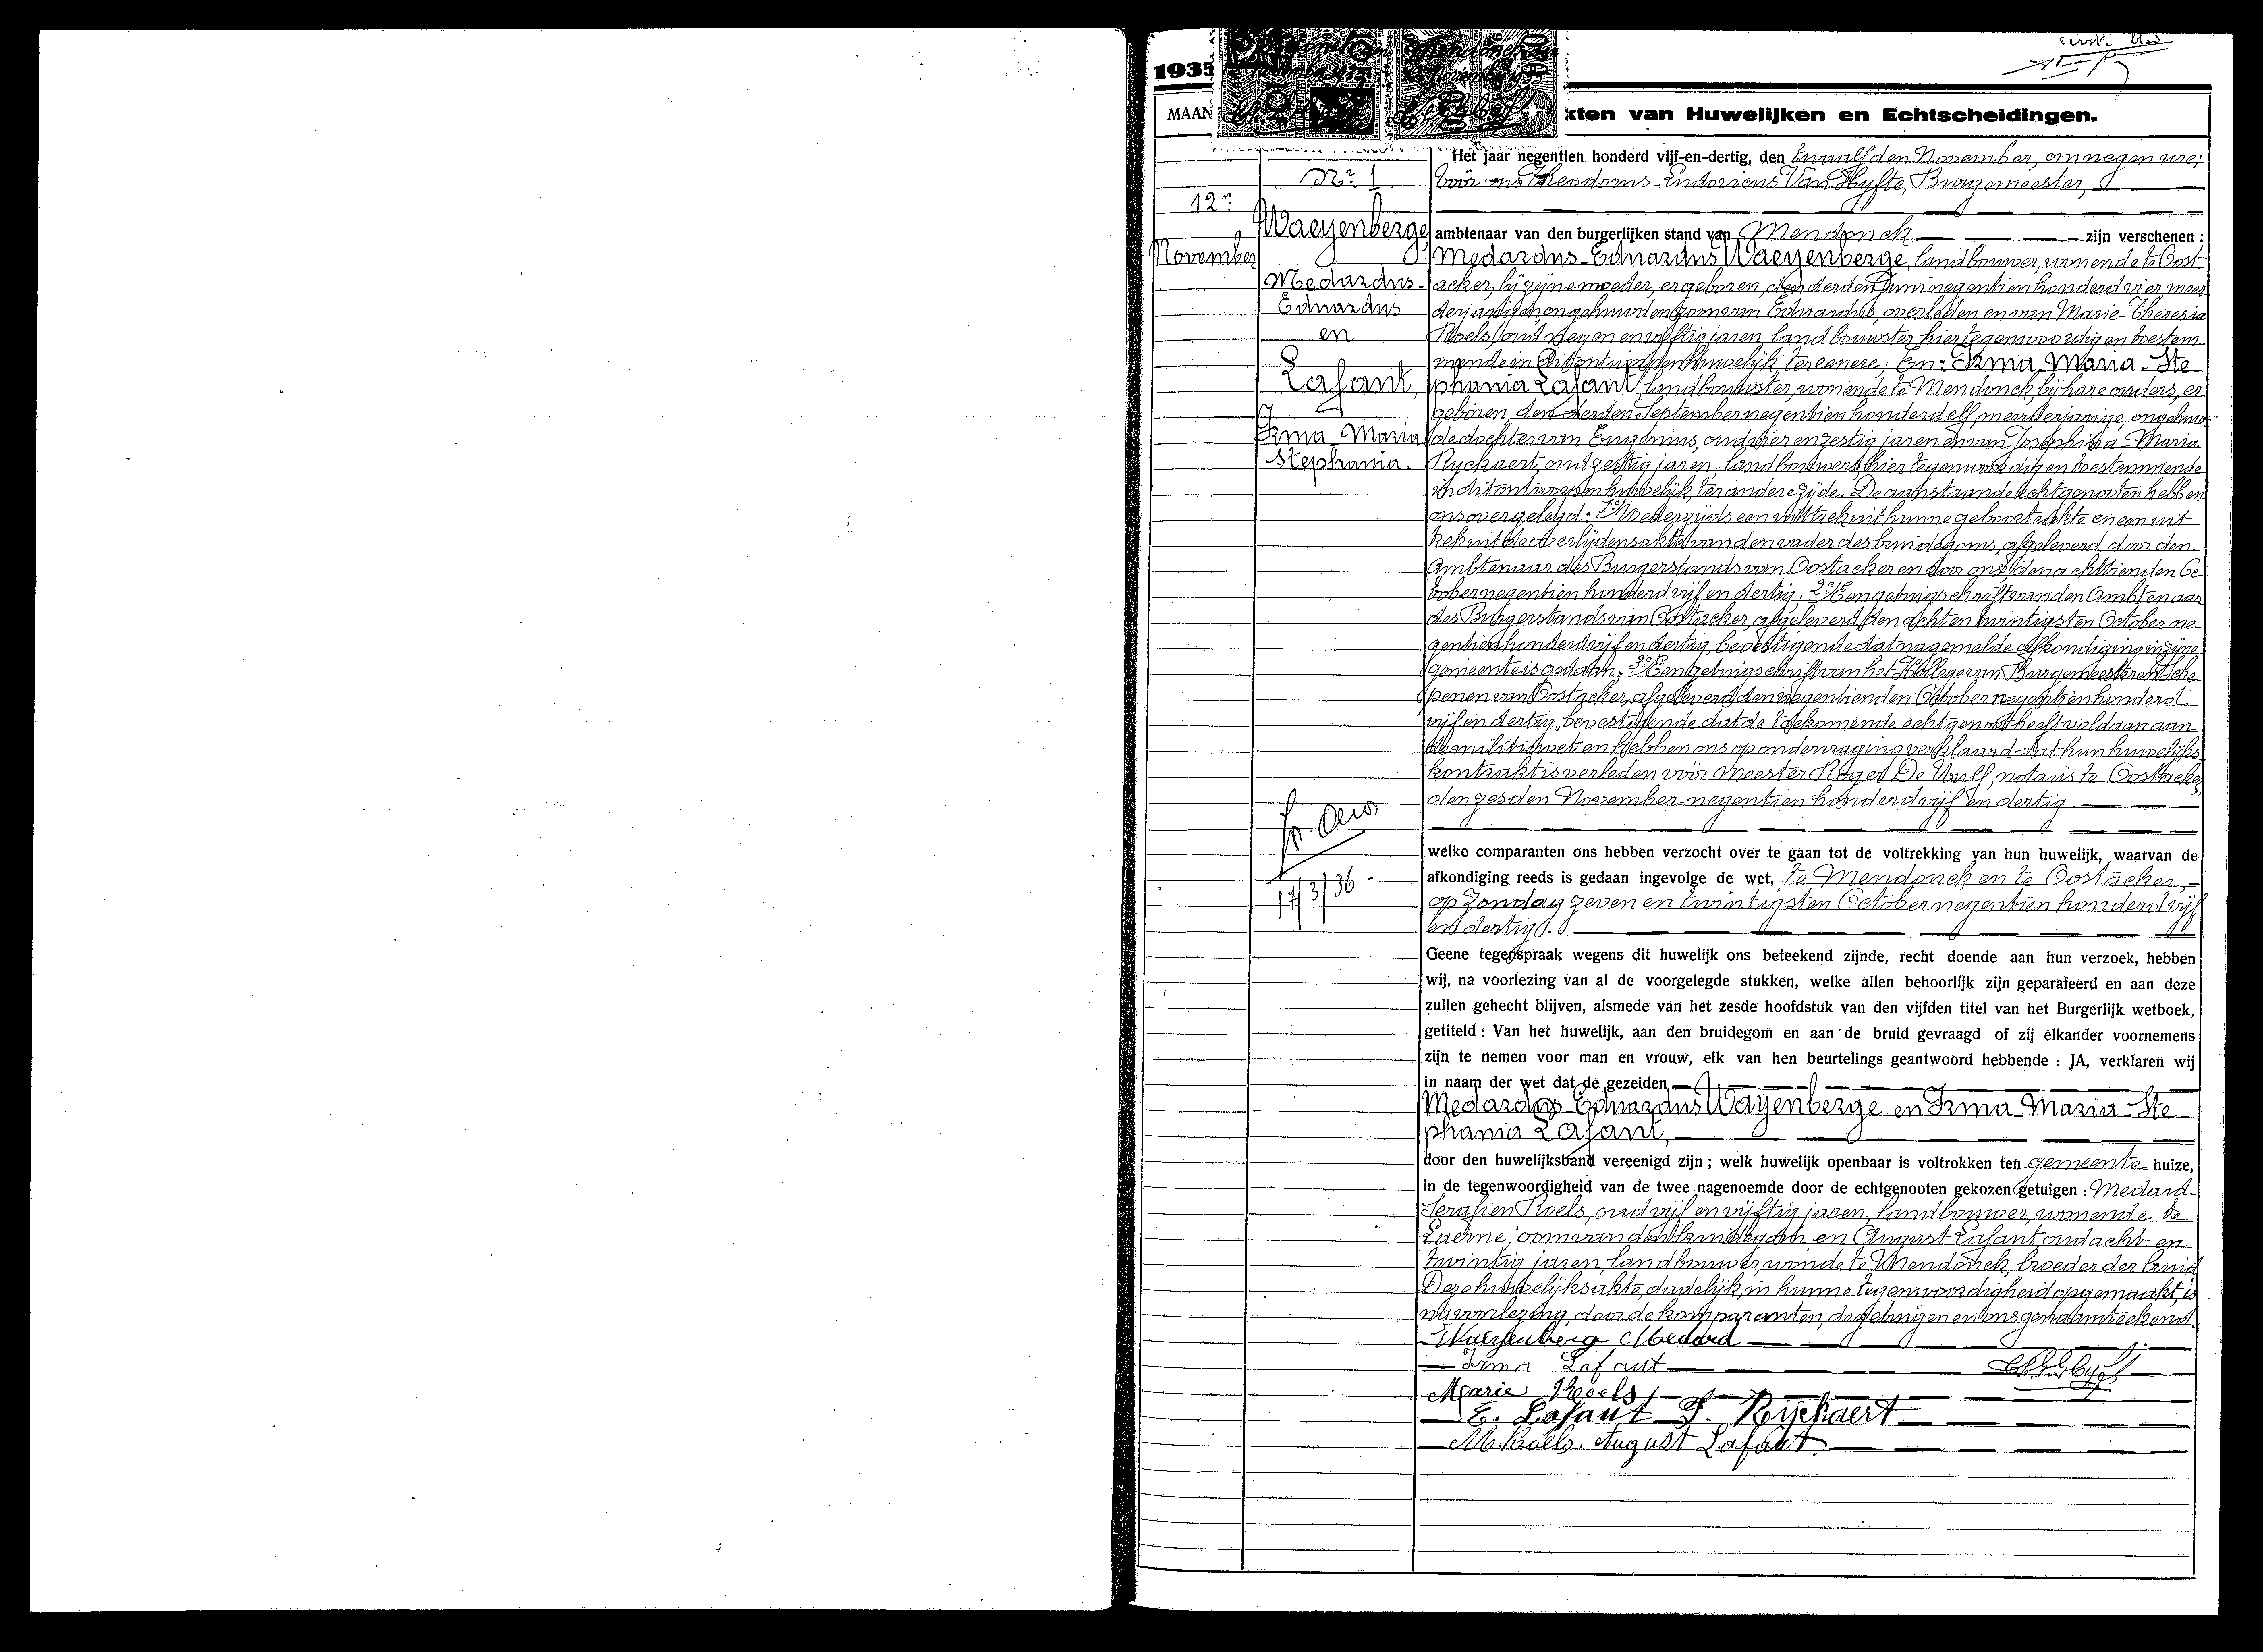 eerste blad
1935
MAAN
kten van Huwelijken en Echtscheidingen.
Nr. 1
12n
November
Waeyenberge,
Medardus-
Eduardus
en
Lafaut,
Irma Maria
Stephania.
17/3/36-
Het jaar negentien honderd vijf-en-dertig, den twaalfden November, om negen ure,
voor ons Theodorus Ludovicus Van Hyfte, Burgemeester,
ambtenaar van den burgerlijken stand van Mendonck zijn verschenen :
Medardus-Eduardus Waeyenberge, landbouwer, wonende te Oost-
acker, bij zijne moeder, er geboren, den derden Juni negentien honderd vier meer
derjarigen, ongehuwden zoon van Eduardus, overleden en van Marie-Theresia
Roels, oud negen en vijftig jaren, landbouwster, hier tegenwoordig en toestem-
mende in dit ontworpen huwelijk, ter eenere; En: Irma Maria-Ste-
phania Lafaut, landbouwster, wonende te Mendonck, bij hare ouders, er
geboren, den derden September negentien honderd elf, meerderjarige, ongehuw-
de dochter van Eugenius, oud vier en zestig jaren en van Josephina-Maria
Ryckaert, oud zestig jaren, landbouwers, hier tegenwoordig en toestemmende
in dit ontworpen huwelijk, ter andere zijde. De aanstaande echtgenoten hebben
ons overgelegd: 1° Wederzijds een uittrek uit hunne geboorteakte en een uit-
trek uit de overlijdensakte van den vader des bruidegoms, afgeleverd door den
Ambtenaar des Burgerstands van Oostacker en door ons, den achttienden Oc
tober negentien honderd vijf en dertig. 2° Een getuigschrift van den Ambtenaar
des Burgerstands van Oostacker, afgeleverd den acht en twintigsten October ne-
gentien honderd vijf en dertig, bevestigende dat nagemelde afkondiging in zijne
gemeente is gedaan. 3° Een getuigschrift van het Kollege van Burgemeester en Sche
penen van Oostacker, afgeleverd den negentienden October negentien honderd
vijf en dertig, bevestigende dat de toekomende echtgenoot heeft voldaan aan
de militiewet en hebben ons op ondervraging verklaard dat hun huwelijks-
kontrakt is verleden voor Meester Roger De Wulf, notaris te Oostacker,
den zesden November negentien honderd vijf en dertig.
welke comparanten ons hebben verzocht over te gaan tot de voltrekking van hun huwelijk, waarvan de
afkondiging reeds is gedaan ingevolge de wet, te Mendonck en te Oostacker,
op Zondag zeven en twintigsten October negentien honderd vijf
en dertig.
Geene tegenspraak wegens dit huwelijk ons beteekend zijnde, recht doende aan hun verzoek, hebben
wij, na voorlezing van al de voorgelegde stukken, welke allen behoorlijk zijn geparafeerd en aan deze
zullen gehecht blijven, alsmede van het zesde hoofdstuk van den vijfden titel van het Burgerlijk wetboek,
getiteld : Van het huwelijk, aan den bruidegom en aan de bruid gevraagd of zij elkander voornemens
zijn te nemen voor man en vrouw, elk van hen beurtelings geantwoord hebbende : JA, verklaren wij
in naam der wet dat de gezeiden
Medardus-Eduardus Wayenberge en Irma-Maria-Ste-
phania Lafaut,
door den huwelijksband vereenigd zijn ; welk huwelijk openbaar is voltrokken ten gemeente huize,
in de tegenwoordigheid van de twee nagenoemde door de echtgenooten gekozen getuigen : Medard-
Serafien Roels, oud vijf en vijftig jaren, landbouwer, wonende te
Laerne, oom van den bruidegom, en August Lafaut, oud acht en
twintig jaren, landbouwer, wonde te Mendonck, broeder der bruid
Deze huwelijksakte, dadelijk, in hunne tegenwoordigheid opgemaakt, is
na voorlezing, door de komparanten, de getuigen en ons genaamteekend.
Waeyenberge Medard
Irma Lafaut
Marie Roels
E. Lafaut J. Rijckaert
M Roels. August Lafaut